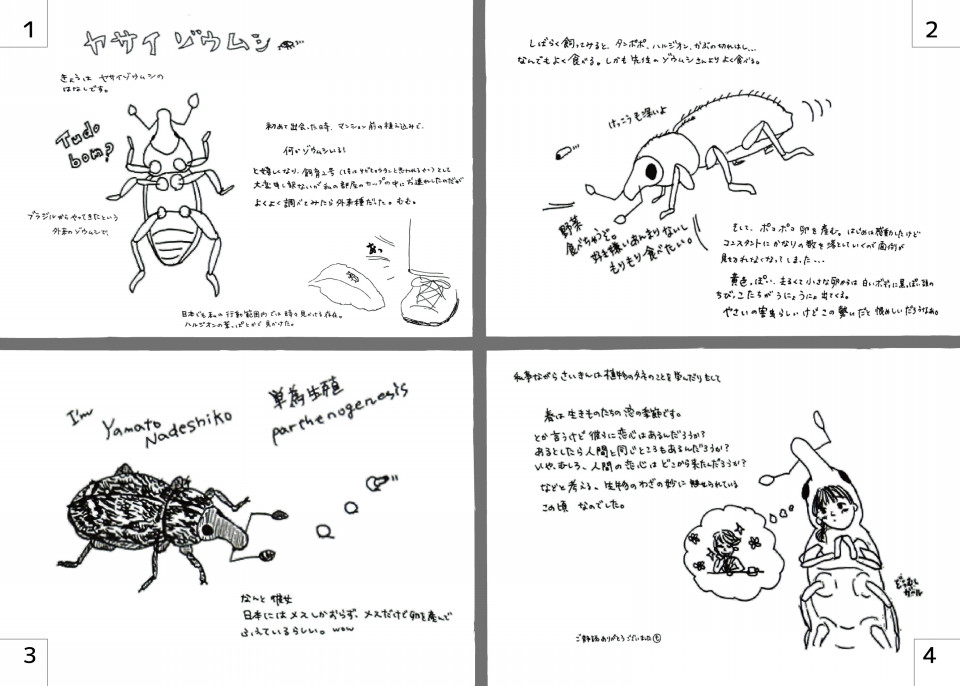 1
ヤサイゾウムシ
きょうは ヤサイゾウムシの
はなしです。
Tudo
bom?
初めて出会った時、マンション前の植え込みで、
何かゾウムシいる!
と嬉しくなり、飼育2号
大変申し訳ないが私の部屋のカップの中にお連れしたのだが
よくよく調べてみたら外来種だった。もも。
ブラジルからやってきたという
外来のゾウムシで、
あっ
日本でも私の行動範囲内では時々見かける存在。
ハルジオンの葉っぱとかで見かけた。
2
しばらく飼ってみると、タンポポ、ハルジオン、かぶの切れはし...
なんでもよく食べる。しかも先住のゾウムシさんよりよく食べる。
けっこう毛深いよ
野菜
食べちゃうぞ。
好き嫌いあんまりないし
もりもり食べたい。
そして、ポコポコ卵を産む。はじめは感動したけど
コンスタントにかなりの数を落としていくので面倒が
見きれなくなってしまった...
黄色っぽい、まるくて小さな卵からは白いボディに黒っぽい頭の
ちびっこたちがうにょうにょ出てくる。
やさいの害虫らしいけどこの勢いだと恨めしいだろうなあ。
3
I'm
Yamato
Nadeshiko
単為生殖
parthenogenesis
なんと 彼女
日本にはメスしかおらず、メスだけで卵を産んで
ふえているらしい。wow
4
私事ながらさいきんは植物のタネのことを学んだりもして
春は生きものたちの恋の季節です。
とか言うけど彼らに恋心はあるんだろうか?
あるとしたら人間と同じところもあるんだろうか?
いや、むしろ、人間の恋心はどこから来たんだろうか?
などと考える、生物のわざの妙に魅せられている
この頃 なのでした。
ぞうむし
ガール
ご静聴ありがとうございました